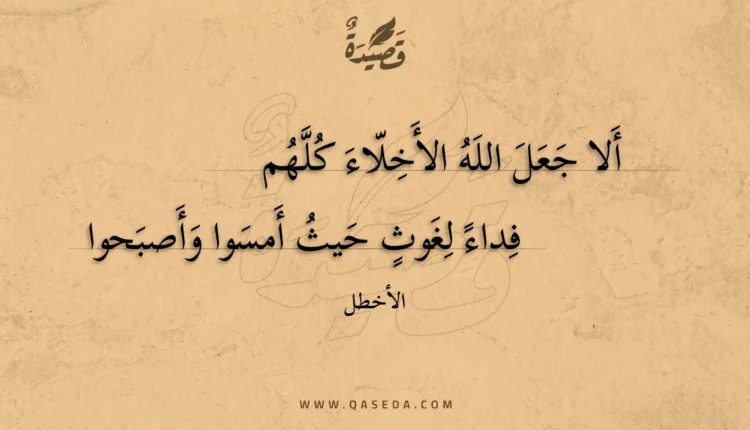 قَصِيْدَةٌ
أَلا جَعَلَ اللَهُ الأَخِلّاءَ كُلَّهُم
فِداءً لِغَوثٍ حَيثُ أَمسَوا وَأَصبَحوا
الأخطل
WWW.QASEDA.COM